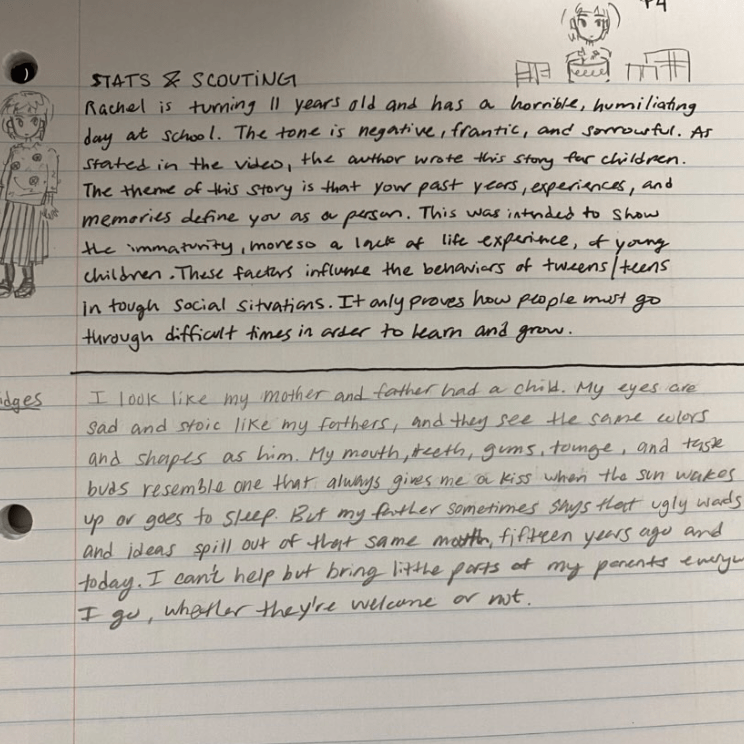 P4
STATS & SCOUTING
Rachel is turning 11 years old and has a horrible, humiliating
day at school. The tone is negative, frantic, and sorrowful. As
stated in the video, the author wrote this story for children.
The theme of this story is that your past years, experiences, and
memories define you as a person. This was intended to show
the immaturity, moreso a lack of life experience, of young
children. These factors influnce the behaviors of tweens/teens
in tough social situations. It only proves how people must go
through difficult times in order to learn and grow.
idges
I look like my mother and father had a child. My eyes are
sad and stoic like my fathers, and they see the same colors
and shapes as him. My mouth, teeth, gums, tounge, and taste
buds resemble one that always gives me a kiss when the sun wakes
up or goes to sleep. But my father sometimes says that ugly words
and ideas spill out of that same mouth, fifteen years ago and
today. I can't help but bring little parts of my parents everyw
I go, whether they're welcome or not.